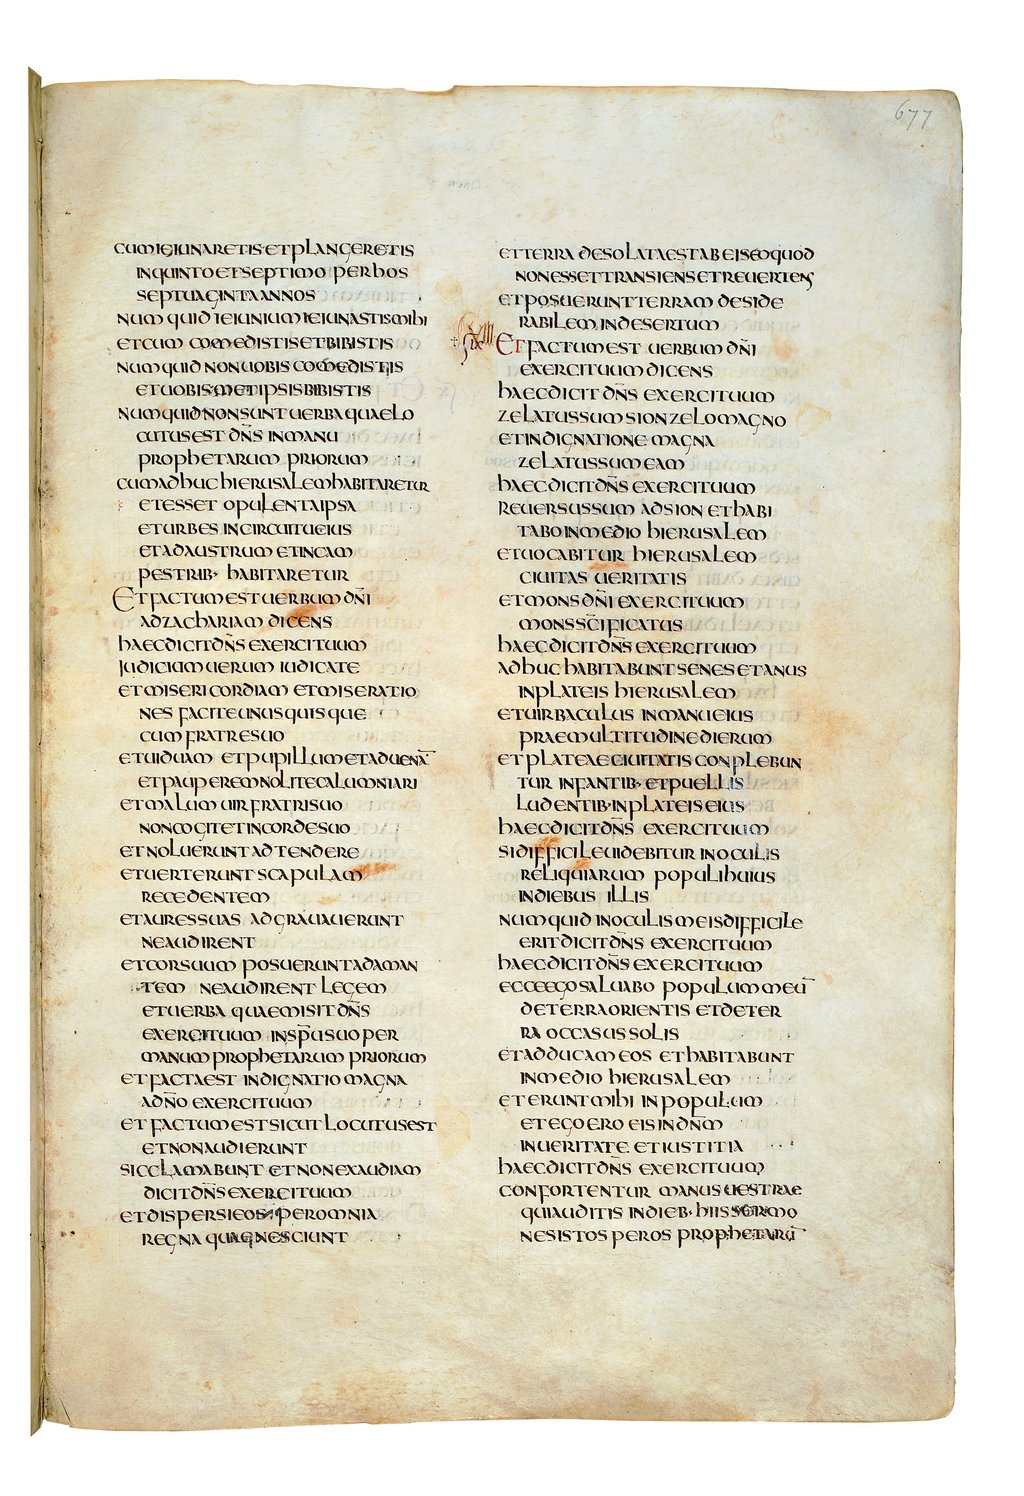 677
CUM IEIUNARETIS ET PLANGERETIS
IN QUINTO ET SEPTIMO PER HOS
SEPTUAGINTA ANNOS
NUMQUID IEIUNIUM IEIUNASTIS MIHI
ET CUM COMEDISTIS ET BIBISTIS
NUMQUID NON UOBIS COMEDISTIS
ET UOBISMETIPSIS BIBISTIS
NUMQUID NON SUNT UERBA QUAE LO
CUTUS EST DN̄S IN MANU
PROPHETARUM PRIORUM
CUM ADHUC HIERUSALEM HABITARETUR
ET ESSET OPULENTA IPSA
ET URBES IN CIRCUITU EIUS
ET AD AUSTRUM ET IN CAM
PESTRIB· HABITARETUR
ET FACTUM EST UERBUM DN̄I
AD ZACHARIAM DICENS
HAEC DICIT DN̄S EXERCITUUM
IUDICIUM UERUM IUDICATE
ET MISERICORDIAM ET MISERATIO
NES FACITE UNUSQUISQUE
CUM FRATRE SUO
ET UIDUAM ET PUPILLUM ET ADUENĀ
ET PAUPEREM NOLITE CALUMNIARI
ET MALUM UIR FRATRI SUO
NON COGITET IN CORDE SUO
ET NOLUERUNT ADTENDERE
ET UERTERUNT SCAPULAM
RECEDENTEM
ET AURES SUAS ADGRAUAUERUNT
NE AUDIRENT
ET COR SUUM POSUERUNT ADAMAN
TEM NE AUDIRENT LEGEM
ET UERBA QUAE MISIT DN̄S
EXERCITUUM IN SP̄U SUO PER
MANUM PROPHETARUM PRIORUM
ET FACTA EST INDIGNATIO MAGNA
A DN̄O EXERCITUUM
ET FACTUM EST SICUT LOCUTUS EST
ET NON AUDIERUNT
SIC CLAMABUNT ET NON EXAUDIAM
DICIT DN̄S EXERCITUUM
ET DISPERSI EOS PER OMNIA
REGNA QUAE NESCIUNT
ET TERRA DESOLATA EST AB EIS EO QUOD
NON ESSET TRANSIENS ET REUERTENS
ET POSUERUNT TERRAM DESIDE
RABILEM IN DESERTUM
ET FACTUM EST UERBUM DN̄I
EXERCITUUM DICENS
HAEC DICIT DN̄S EXERCITUUM
ZELATUS SUM SION ZELO MAGNO
ET INDIGNATIONE MAGNA
ZELATUS SUM EAM
HAEC DICIT DN̄S EXERCITUUM
REUERSUS SUM AD SION ET HABI
TABO IN MEDIO HIERUSALEM
ET UOCABITUR HIERUSALEM
CIUITAS UERITATIS
ET MONS DN̄I EXERCITUUM
MONS SC̄IFICATUS
HAEC DICIT DN̄S EXERCITUUM
ADHUC HABITABUNT SENES ET ANUS
IN PLATEIS HIERUSALEM
ET UIR BACULUS IN MANU EIUS
PRAE MULTITUDINE DIERUM
ET PLATEAE CIUITATIS CONPLEBUN
TUR INFANTIB· ET PUELLIS
LUDENTIB· IN PLATEIS EIUS
HAEC DICIT DN̄S EXERCITUUM
SI DIFFICILE UIDEBITUR IN OCULIS
RELIQUIARUM POPULI HUIUS
IN DIEBUS ILLIS
NUMQUID IN OCULIS MEIS DIFFICILE
ERIT DICIT DN̄S EXERCITUUM
HAEC DICIT DN̄S EXERCITUUM
ECCE EGO SALUABO POPULUM MEŪ
DE TERRA ORIENTIS ET DE TER
RA OCCASUS SOLIS
ET ADDUCAM EOS ET HABITABUNT
IN MEDIO HIERUSALEM
ET ERUNT MIHI IN POPULUM
ET EGO ERO EIS IN DN̄M
IN UERITATE ET IUSTITIA
HAEC DICIT DN̄S EXERCITUUM
CONFORTENTUR MANUS UESTRAE
QUI AUDITIS IN DIEB· HIIS SERMO
NES ISTOS PER OS PROPHETARŪ